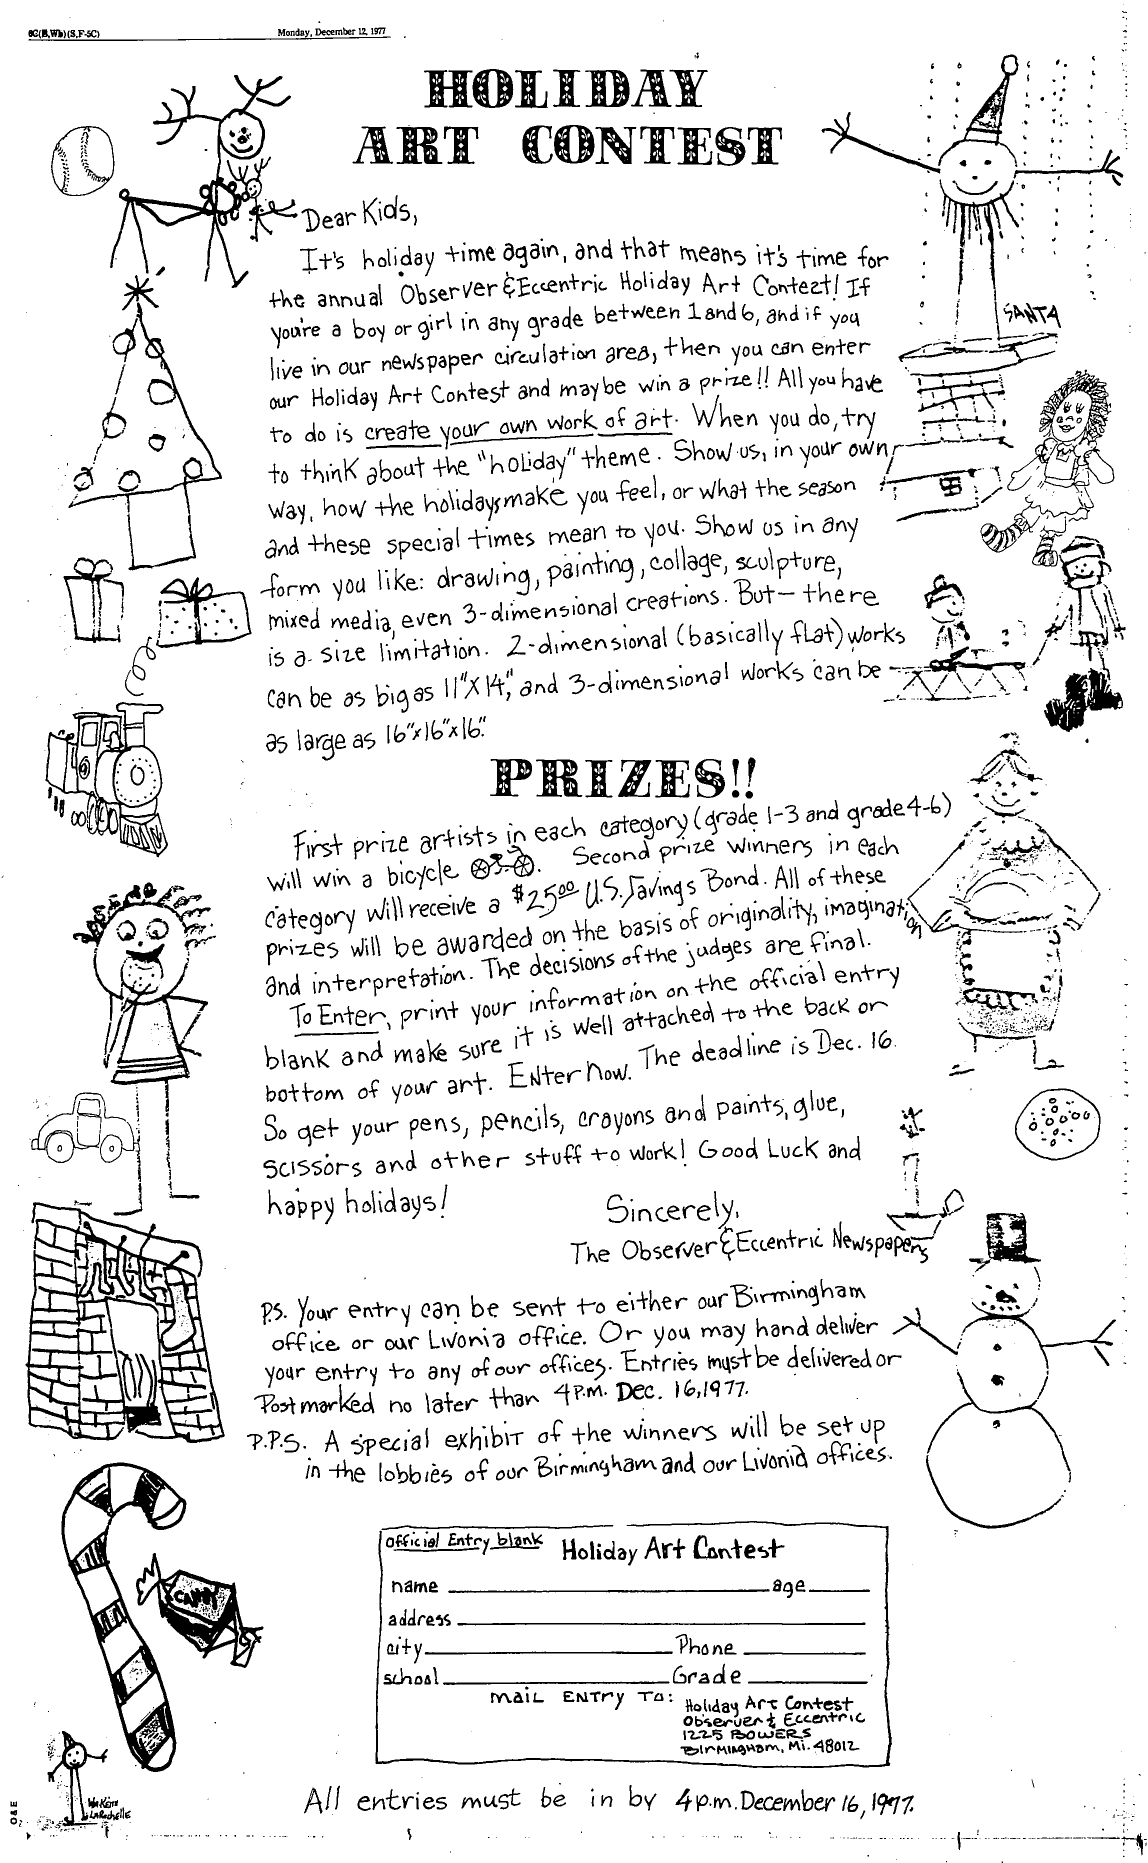 6C(B,Wb)(S,F-5C)
Monday, December 12, 1977
HOLIDAY
ART CONTEST
Dear Kids,
It's holiday time again, and that means it's time for
the annual Observer & Eccentric Holiday Art Contest! If
you're a boy or girl in any grade between 1 and 6, and if you
live in our newspaper circulation area, then you can enter
our Holiday Art Contest and maybe win a prize!! All you have
to do is create your own work of art. When you do, try
to think about the "holiday" theme. Show us, in your own
way, how the holidays make you feel, or what the season
and these special times mean to you. Show us in any
form you like: drawing, painting, collage, sculpture,
mixed media, even 3-dimensional creations. But- there
is a size limitation. 2-dimensional (basically flat) works
can be as big as 11"X14", and 3-dimensional works can be
as large as 16"x16"x16".
SANTA
PRIZES!!
First prize artists in each category (grade 1-3 and grade 4-6)
will win a bicycle. Second prize winners in each
category will receive a $25.00 U.S. Savings Bond. All of these
prizes will be awarded on the basis of originality, imagination
and interpretation. The decisions of the judges are final.
To Enter, print your information on the official entry
blank and make sure it is well attached to the back or
bottom of your art. Enter Now. The deadline is Dec. 16.
So get your pens, pencils, crayons and paints, glue,
scissors and other stuff to work! Good Luck and
happy holidays!
Sincerely,
The Observer & Eccentric Newspapers
P.S. Your entry can be sent to either our Birmingham
office or our Livonia office. Or you may hand deliver
your entry to any of our offices. Entries must be delivered or
Postmarked no later than 4 P.M. Dec. 16, 1977.
P.P.S. A special exhibit of the winners will be set up
in the lobbies of our Birmingham and our Livonia offices.
CANDY
Official Entry blank Holiday Art Contest
name age
address
city Phone
school Grade
Mail Entry To: Holiday Art Contest
Observer & Eccentric
1225 Bowers
Birmingham, Mi. 48012
LaRochelle
O&E
All entries must be in by 4 p.m. December 16, 1977.